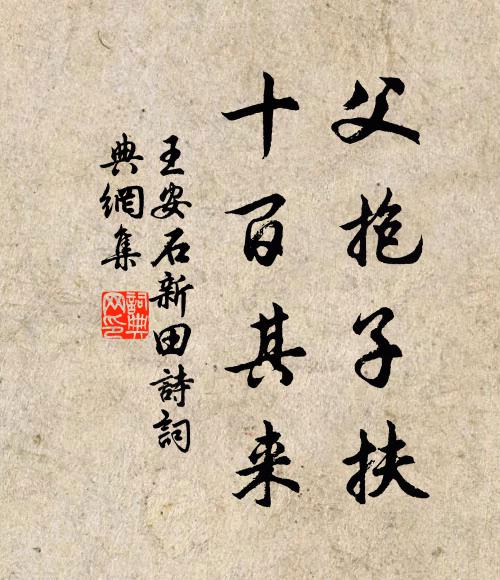 父抱子扶
十百其来
王安石新田詩詞
典網集
詞典网印